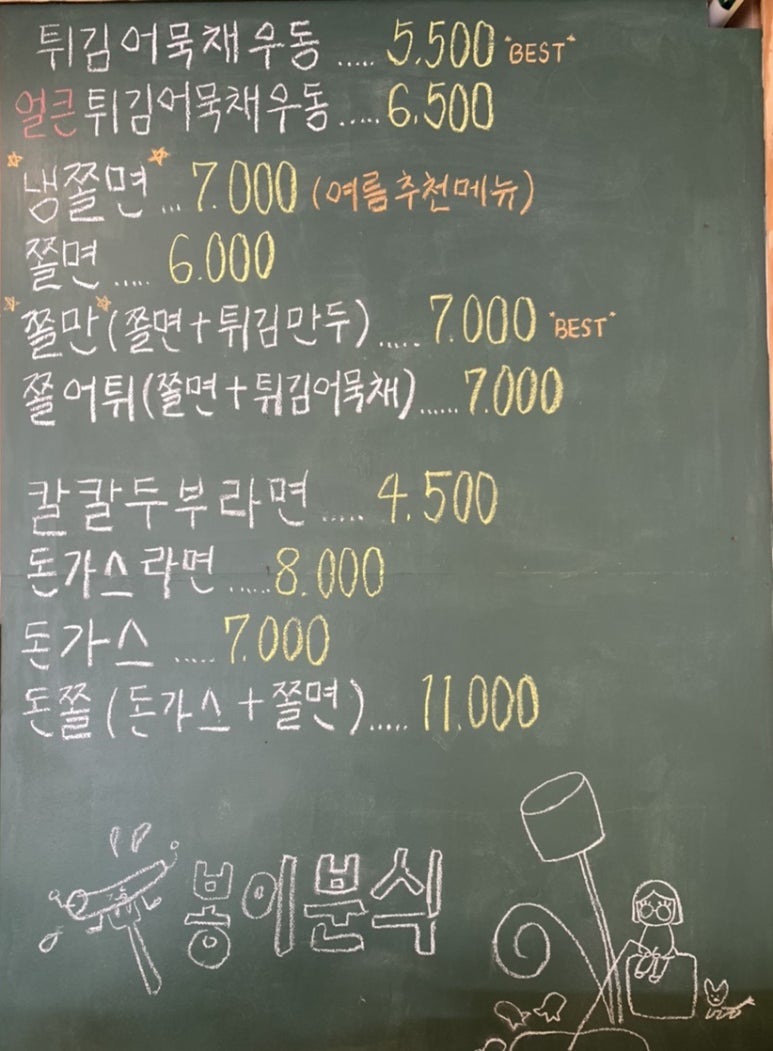 튀김어묵채우동..... 5.500 *BEST*
얼큰튀김어묵채우동..... 6.500
냉쫄면... 7.000 (여름추천메뉴)
쫄면..... 6.000
쫄만(쫄면+튀김만두)..... 7.000 *BEST*
쫄어튀(쫄면+튀김어묵채)...... 7.000
칼칼두부라면..... 4.500
돈가스라면..... 8.000
돈가스..... 7.000
돈쫄(돈가스+쫄면)..... 11.000
봉이분식